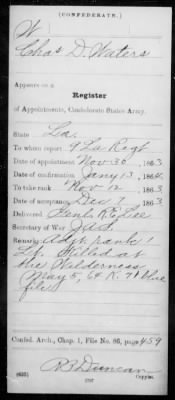 (CONFEDERATE.)
W
Chas D. Waters
Appears on a
Register
of Appointments, Confederate States Army.
State La.
To whom report 9 La Regt
Date of appointment Nov 30, 1863
Date of confirmation Jany 13, 1864
To take rank Nov 12, 1863
Date of acceptance Dec 7, 1863
Delivered Genl R E Lee
Secretary of War Jas.
Remarks: Adjt. rank 1
Lt. Killed at
the Wilderness
May 5, 64
file
Confed. Arch., Chap. 1, File No. 86, page 459
R B Duncan
Copyist.